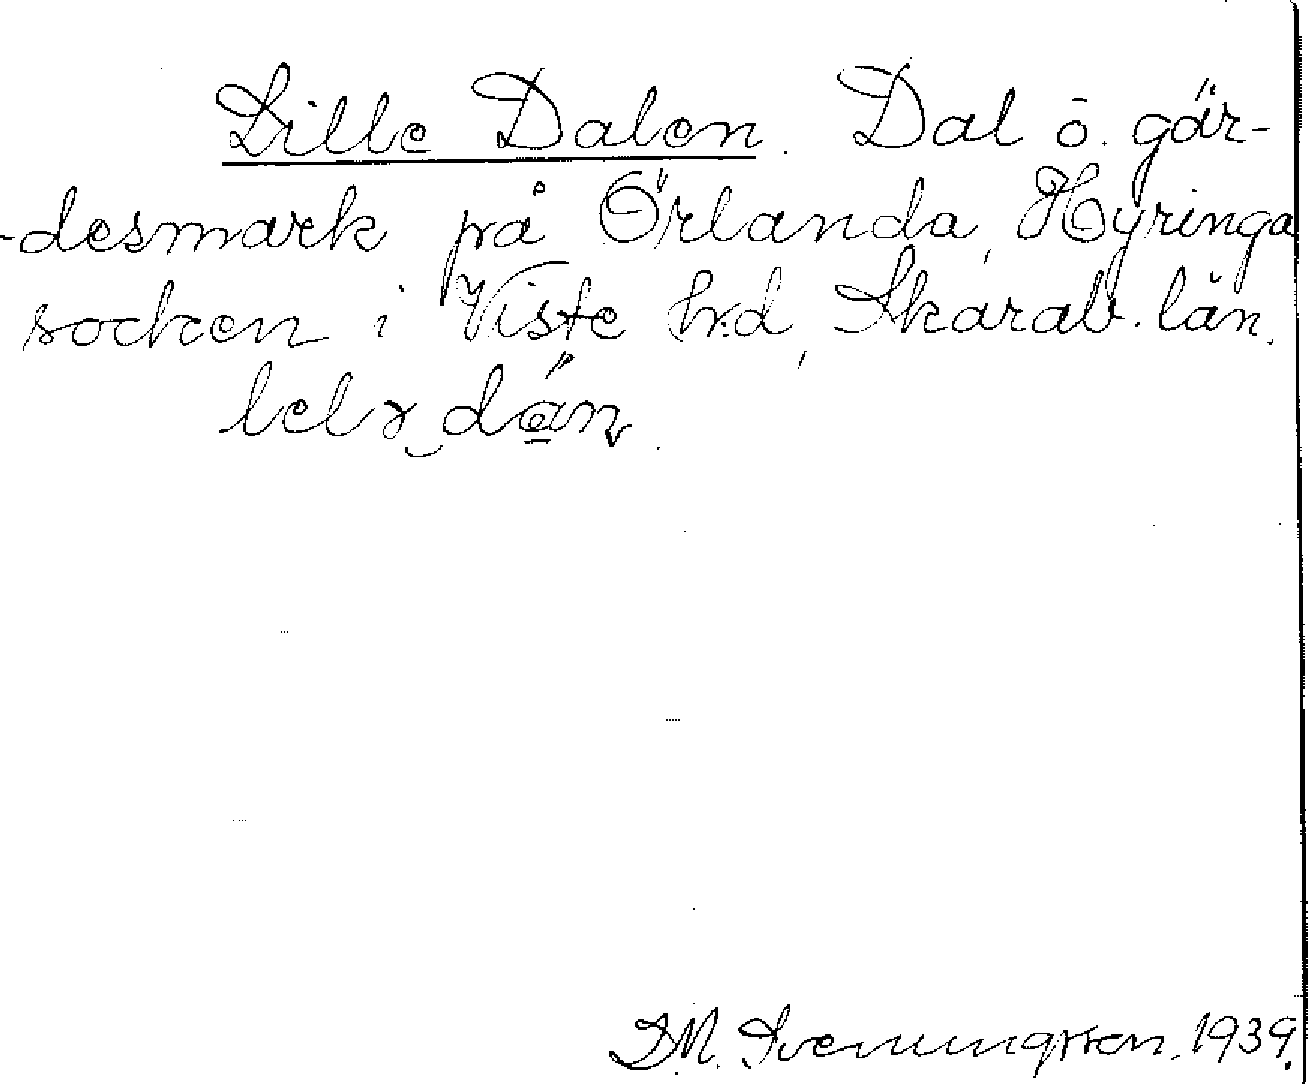 Lille Dalen. Dal o. gär-
-desmark på Örlanda, Hyringa
socken i Viste hrd, Skarab. län.
D.M. Svenungsson. 1939.